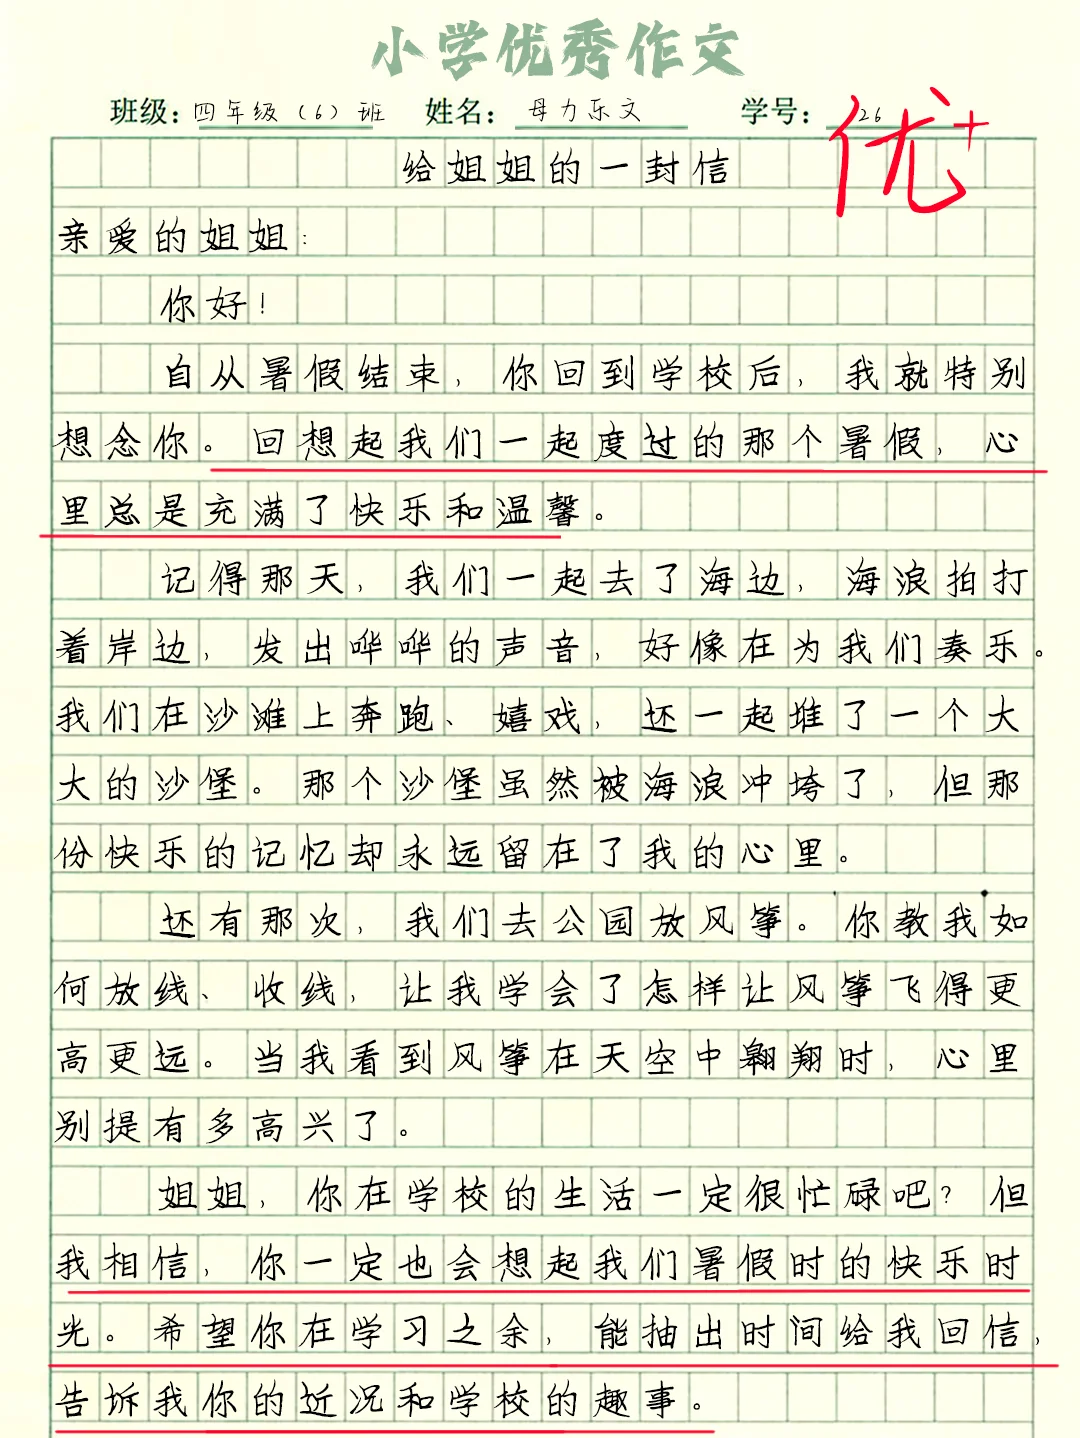 小学优秀作文
班级：四年级（6）班 姓名：母力乐文 学号：26
优+
给姐姐的一封信
亲爱的姐姐：
你好！
自从暑假结束，你回到学校后，我就特别
想念你。回想起我们一起度过的那个暑假，心
里总是充满了快乐和温馨。
记得那天，我们一起去了海边，海浪拍打
着岸边，发出哗哗的声音，好像在为我们奏乐。
我们在沙滩上奔跑、嬉戏，还一起堆了一个大
大的沙堡。那个沙堡虽然被海浪冲垮了，但那
份快乐的记忆却永远留在了我的心里。
还有那次，我们去公园放风筝。你教我如
何放线、收线，让我学会了怎样让风筝飞得更
高更远。当我看到风筝在天空中翱翔时，心里
别提有多高兴了。
姐姐，你在学校的生活一定很忙碌吧？但
我相信，你一定也会想起我们暑假时的快乐时
光。希望你在学习之余，能抽出时间给我回信，
告诉我你的近况和学校的趣事。